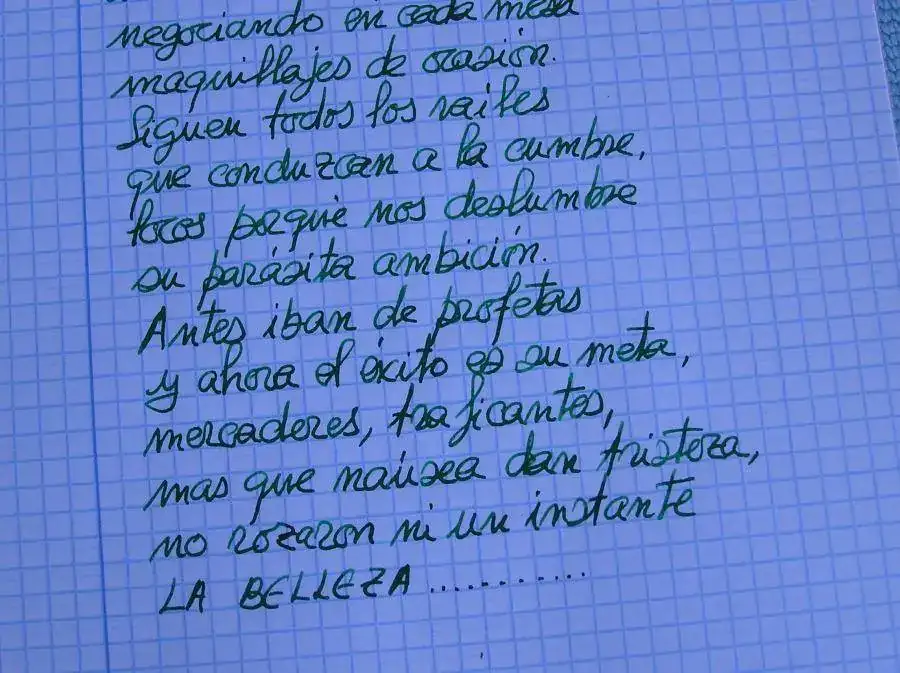 negociando en cada mesa
maquillajes de ocasión.
Siguen todos los railes
que conduzcan a la cumbre,
locos porque nos deslumbre
su parásita ambición.
Antes iban de profetas
y ahora el éxito es su meta,
mercaderes, traficantes,
mas que naúsea dan tristeza,
no rozaron ni un instante
LA BELLEZA............